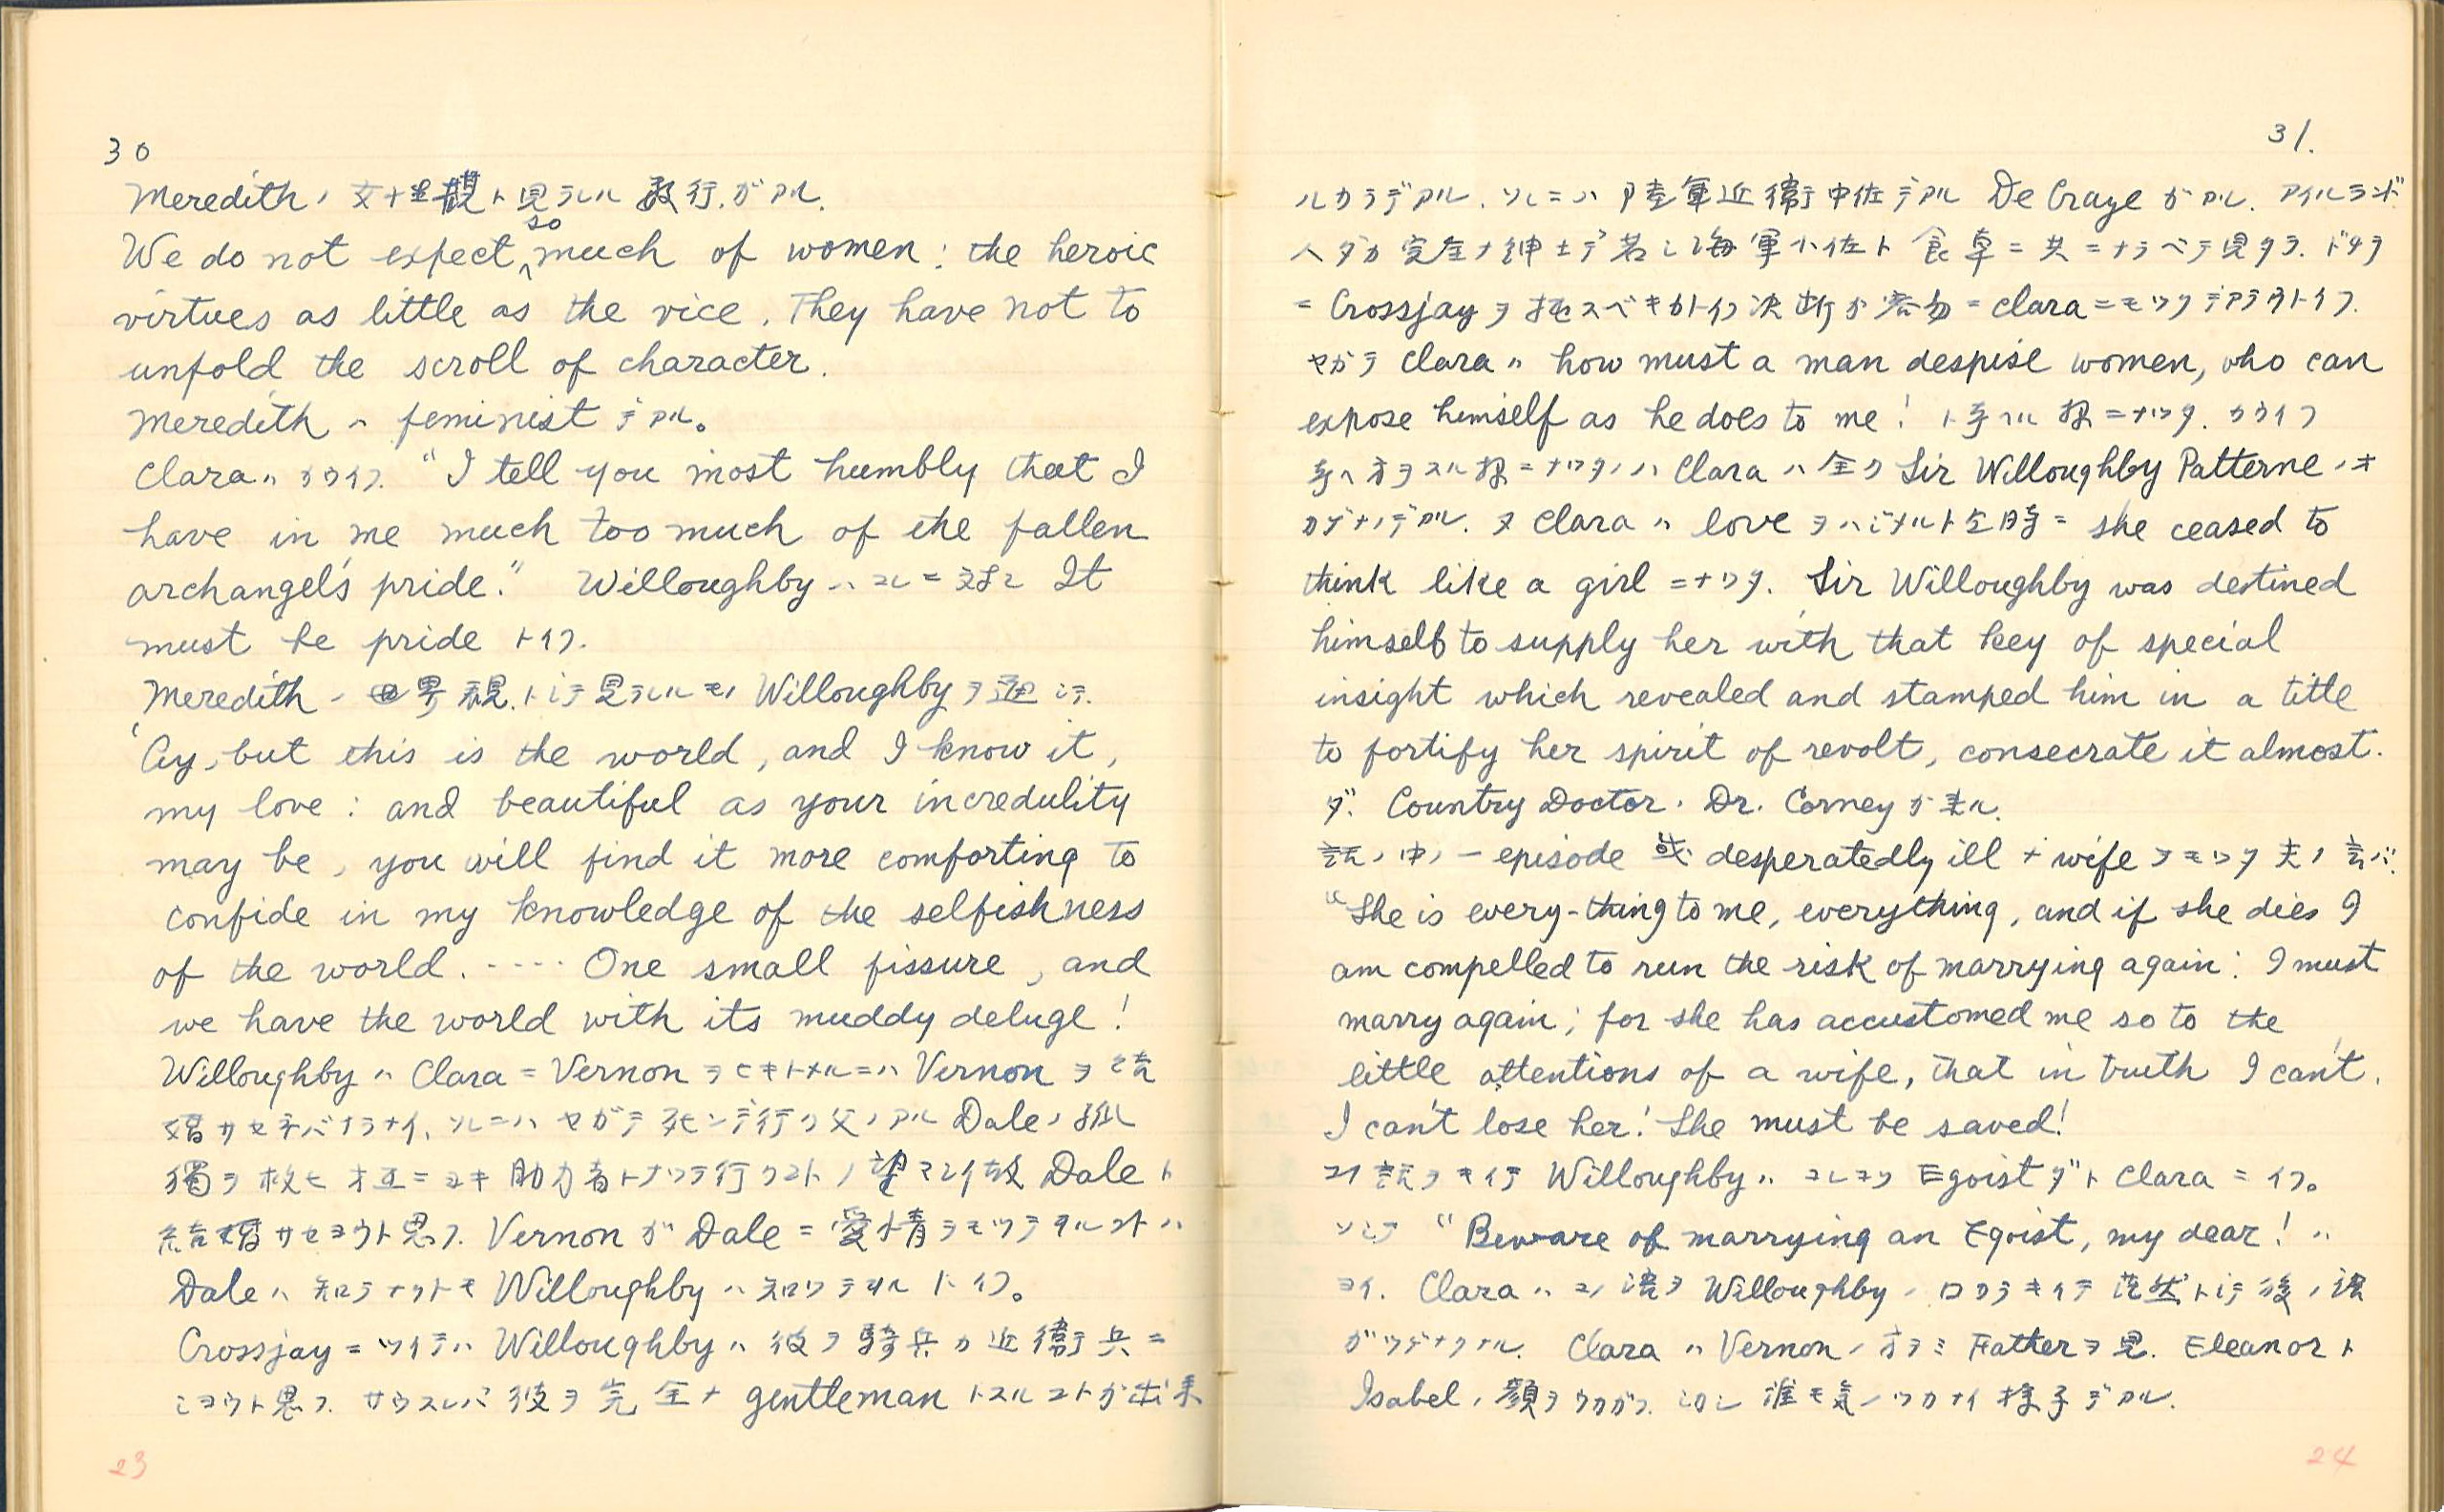 30
Meredith ノ 女性観ト見ラルル 数行ガアル.
We do not expect so much of women: the heroic
virtues as little as the vice. They have not to
unfold the scroll of character.
Meredith ハ feminist デアル。
Clara ハ カウイフ. "I tell you most humbly that I
have in me much too much of the fallen
archangel's pride." Willoughby ハ コレニ対シ It
must be pride トイフ.
Meredith ノ 世界観トシテ見ラルルモノ Willoughby ヲ通シテ.
'Ay, but this is the world, and I know it,
my love: and beautiful as your incredulity
may be, you will find it more comforting to
confide in my knowledge of the selfishness
of the world. ····· One small fissure, and
we have the world with its muddy deluge!
Willoughby ハ Clara ニ Vernon ヲヒキトメルニハ Vernon ヲ結
婚サセネバナラナイ. ソレニハ ヤガテ死ンデ行ク父ノアル Dale ノ孤
獨ヲ救ヒ オ互ニヨキ助力者トナツテ行クコトノ望マシイ故 Dale ト
結婚サセヨウト思フ. Vernon ガ Dale ニ愛情ヲモツテヰルコトハ
Dale ハ知ラナクトモ Willoughby ハ知ツテヰル トイフ。
Crossjay ニツイテハ Willoughby ハ彼ヲ騎兵カ近衛兵ニ
シヨウト思フ. サウスレバ彼ヲ完全ナ gentleman トスルコトガ出来
23
31.
ルカラデアル. ソレニハ陸軍近衛中佐デアル De Craye ガアル. アイルランド
人ダガ完全ナ紳士デ若シ海軍小佐ト食卓ニ共ニナラベテ見タラ. ドチラ
ニ Crossjay ヲ托スベキカトイフ決断ガ容易ニ Clara ニモツクデアラウトイフ.
ヤガテ Clara ハ how must a man despise women, who can
expose himself as he does to me! ト考ヘル様ニナツタ. カウイフ
考ヘ方ヲスル様ニナツタノハ Clara ハ全ク Sir Willoughby Patterne ノオ
カゲナノデアル. 又 Clara ハ love ヲハジメルト同時ニ she ceased to
think like a girl ニナツタ. Sir Willoughby was destined
himself to supply her with that key of special
insight which revealed and stamped him in a title
to fortify her spirit of revolt, consecrate it almost.
ダ. Country Doctor. Dr. Corney ガ来ル.
話ノ中ノ一 episode 或 desperatedly ill ナ wife ヲモツタ夫ノ言バ.
"She is every-thing to me, everything, and if she dies I
am compelled to run the risk of marrying again: I must
marry again; for she has accustomed me so to the
little attentions of a wife, that in truth I can't,
I can't lose her! She must be saved!
コノ話ヲキイテ Willoughby ハ コレコソ Egoist ダト Clara ニイフ。
ソシテ "Beware of marrying an Egoist, my dear! "
ヨイ. Clara ハコノ話ヲ Willoughby ノ口カラキイテ茫然トシテ後ノ話
ガツゲナクナル. Clara ハ Vernon ノ方ヲミ Father ヲ見. Eleanor ト
Isabel ノ顔ヲウカガフ. シカシ誰モ気ノツカナイ様子デアル.
24